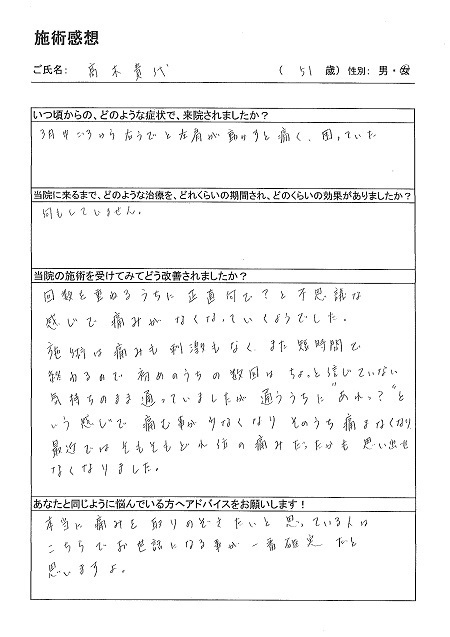 施術感想
ご氏名: 高木貴代 ( 51 歳) 性別: 男・女
いつ頃からの、どのような症状で、来院されましたか?
3月中ごろから右うでと左肩が動かすと痛く、困っていた
当院に来るまで、どのような治療を、どれくらいの期間され、どのくらいの効果がありましたか?
何もしていません。
当院の施術を受けてみてどう改善されましたか?
回数を重ねるうちに正直何で?と不思議な
感じで痛みがなくなっていくようでした。
施術は痛みも刺激もなく、また短時間で
終わるので初めのうちの数回はちょっと信じていない
気持ちのまま通っていましたが通ううちに"あれっ?"と
いう感じで痛む事が少なくなりそのうち痛まなくなり
最近ではそもそもどれ位の痛みだったかも思い出せ
なくなりました。
あなたと同じように悩んでいる方へアドバイスをお願いします!
本当に痛みを取りのぞきたいと思っている人は
こちらでお世話になる事が一番確実だと
思いますよ。